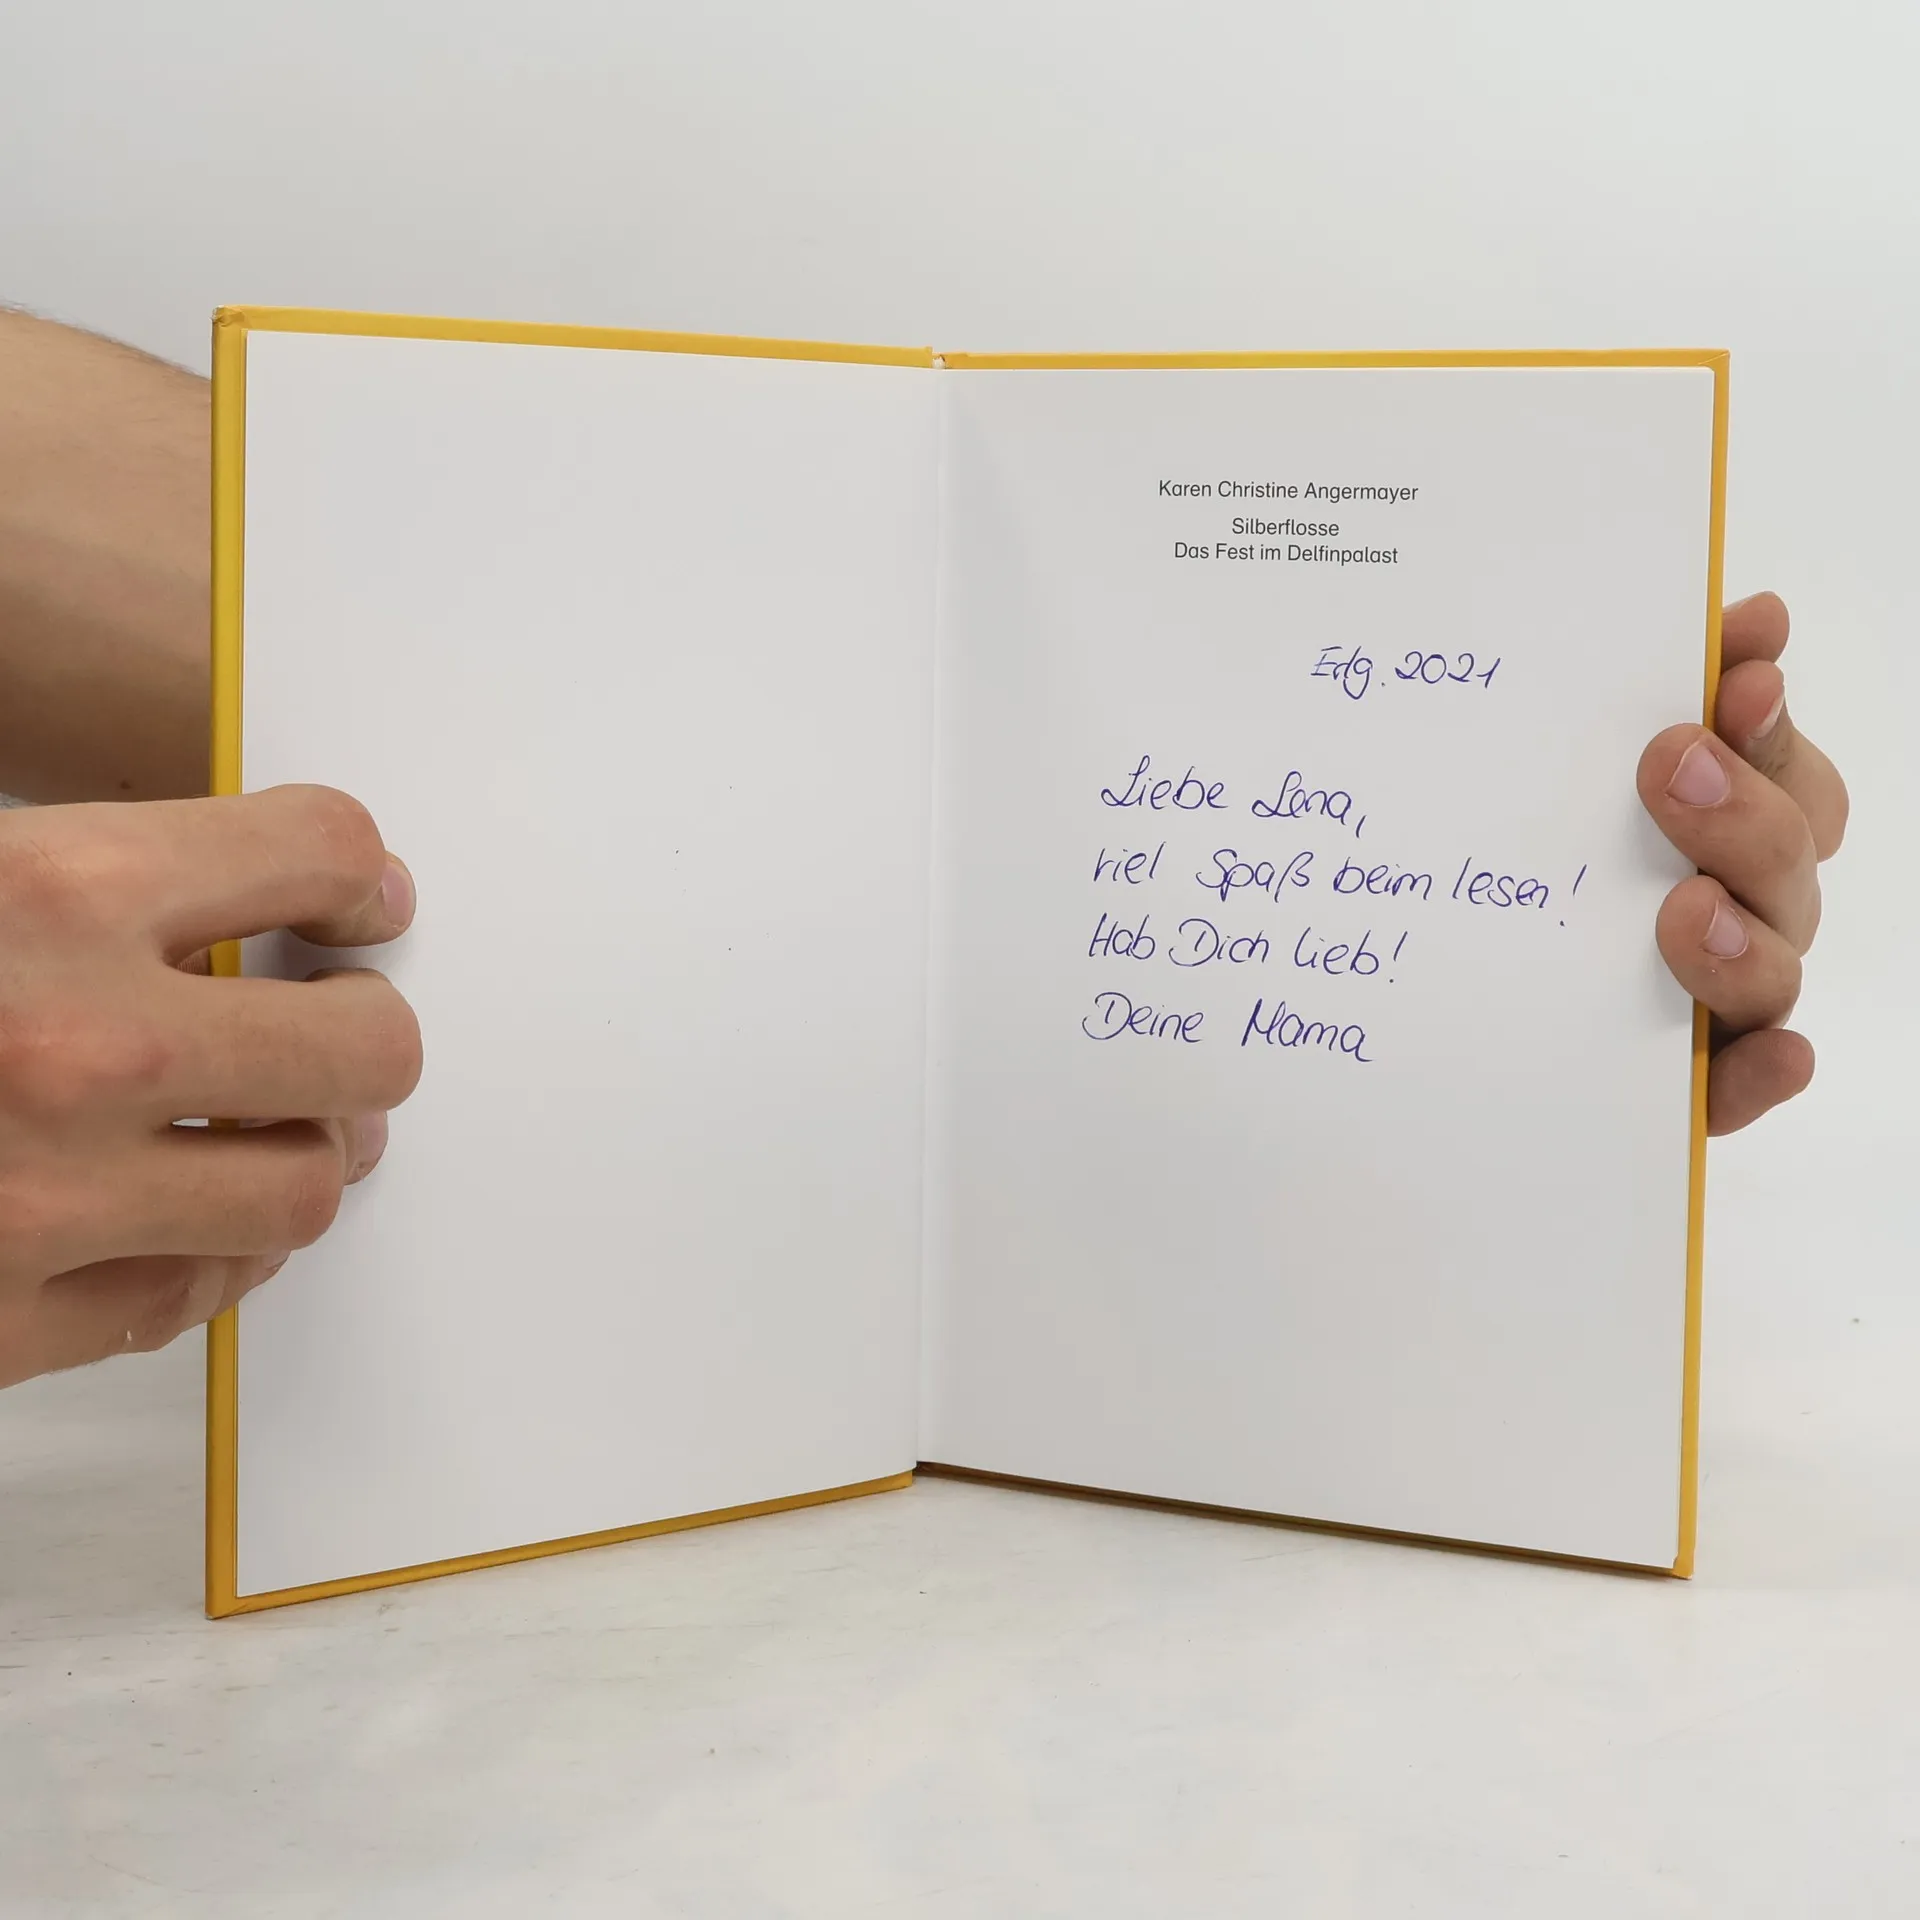 Karen Christine Angermayer
Silberflosse
Das Fest im Delfinpalast
Erlg. 2021
Liebe Lena,
viel Spaß beim lesen!
Hab Dich lieb!
Deine Mama